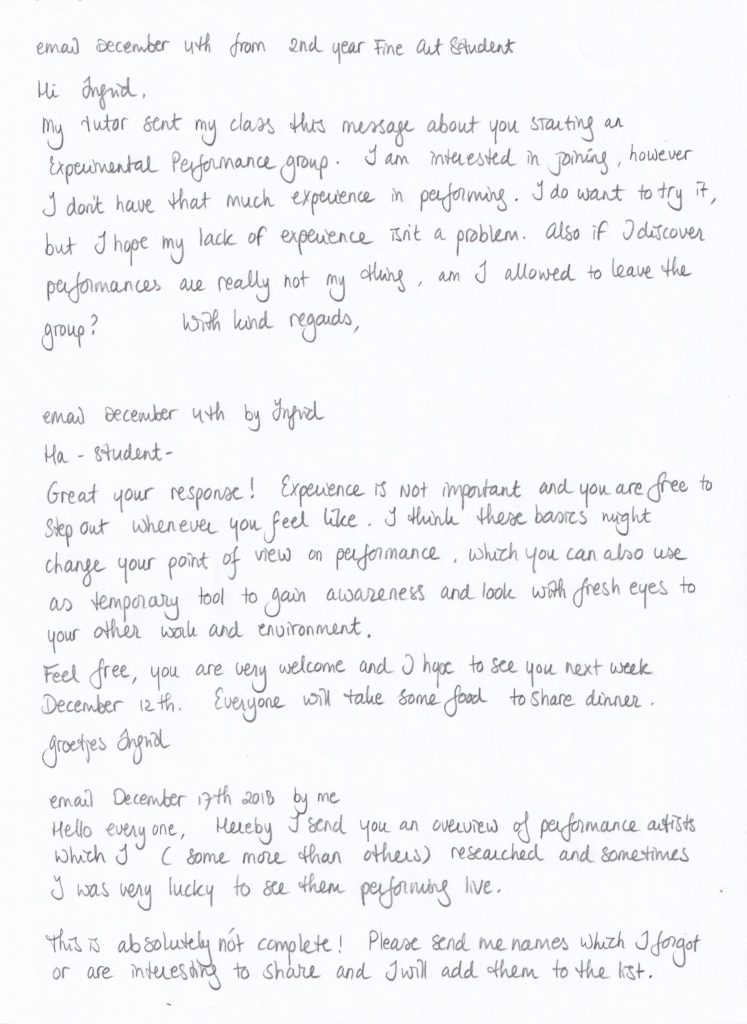 email December 4th from 2nd year Fine Art Student
Hi Ingrid,
My tutor sent my class this message about you starting an
Experimental Performance group. I am interested in joining, however
I don't have that much experience in performing. I do want to try it,
but I hope my lack of experience isn't a problem. Also if I discover
performances are really not my thing, am I allowed to leave the
group? With kind regards,
email December 4th by Ingrid
Ha - Student -
Great your response! Experience is not important and you are free to
step out whenever you feel like. I think these basics might
change your point of view on performance, which you can also use
as temporary tool to gain awareness and look with fresh eyes to
your other work and environment.
Feel free, you are very welcome and I hope to see you next week
December 12th. Everyone will take some food to share dinner.
groetjes Ingrid
email December 17th 2018 by me
Hello everyone, Hereby I send you an overview of performance artists
which I (some more than others) researched and sometimes
I was very lucky to see them performing live.
This is absolutely nót complete! Please send me names which I forgot
or are interesting to share and I will add them to the list.